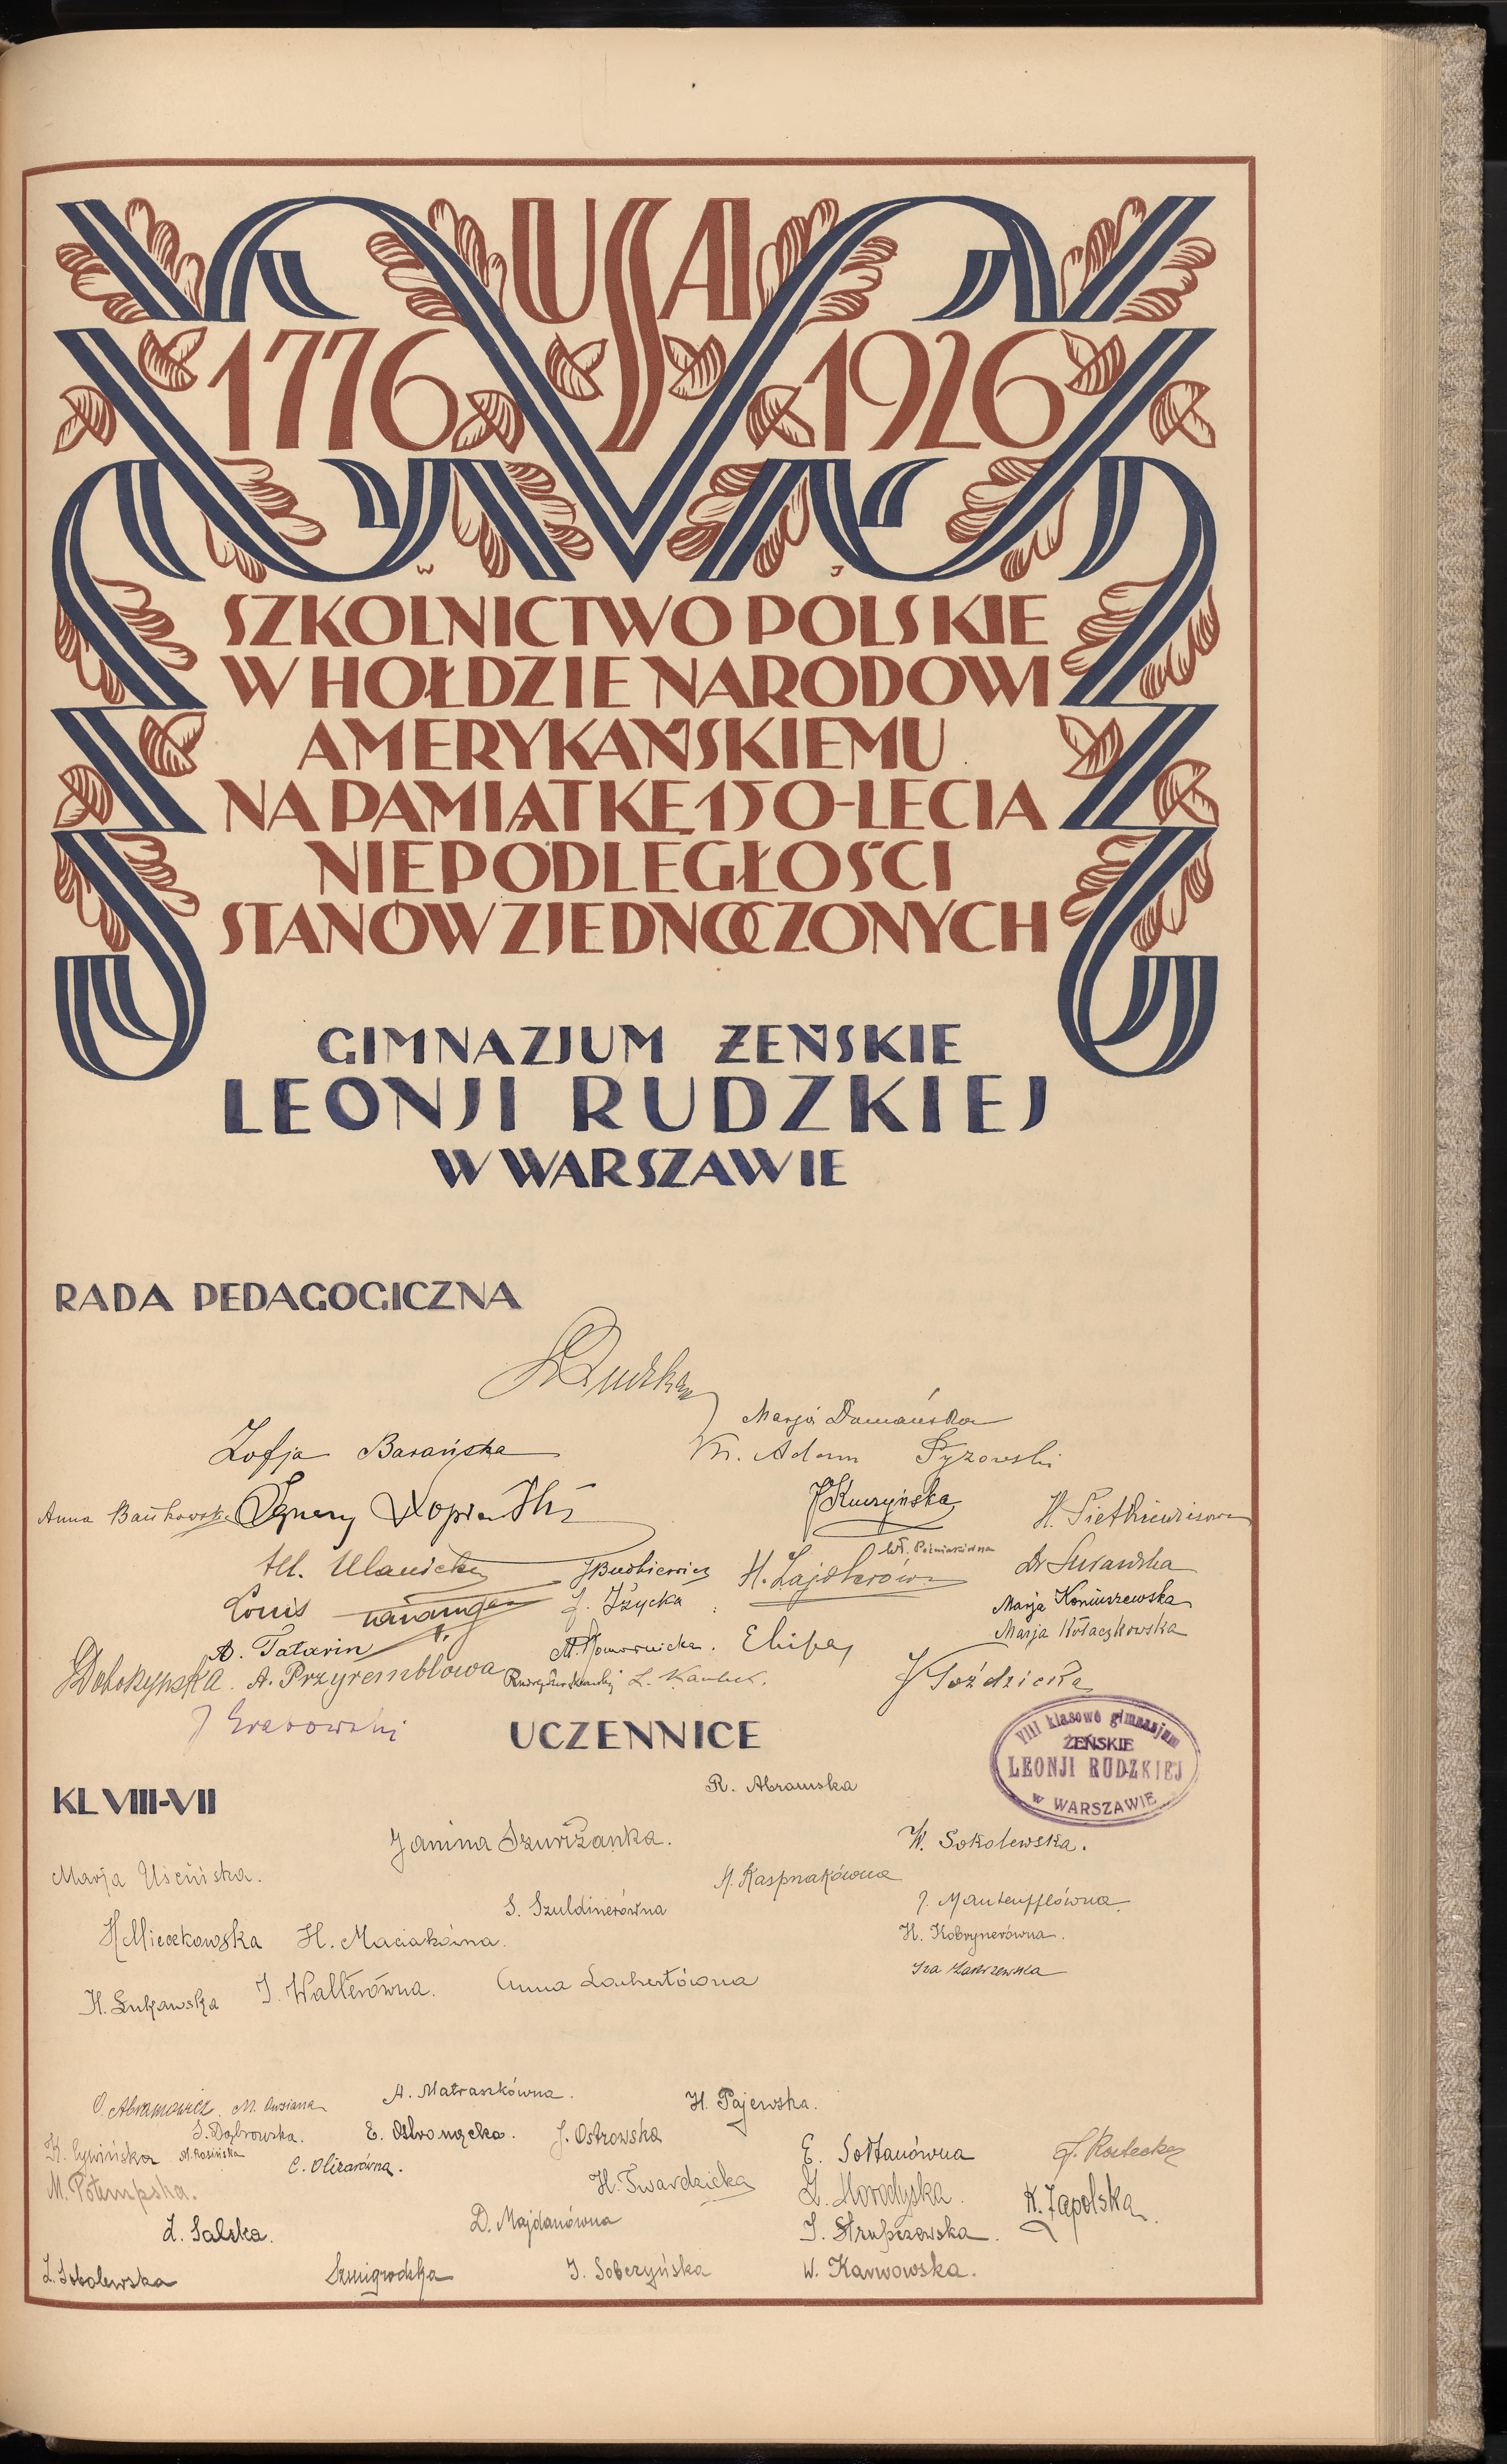 USA
1776 1926
W J
SZKOLNICTWO POLSKIE
W HOŁDZIE NARODOWI
AMERYKAŃSKIEMU
NA PAMIĄTKĘ 150-LECIA
NIEPODLEGŁOŚCI
STANÓW ZJEDNOCZONYCH
GIMNAZJUM ŻEŃSKIE
LEONJI RUDZKIEJ
W WARSZAWIE
RADA PEDAGOGICZNA
LRudzka
Marja Damańska
Zofja Barańska
Ks. Adam Pyzowski
Anna Bańkowska
Ignacy
JKuczyńska
H. Pietkiewiczowa
Wł. Poźniakówna
M. Ulanicka
JBudkiewicz
H. Zajdlerówna
Dr Surawska
Louis
J. Iżycka
Marja Koniuszewska
Marja Kołaczkowska
A. Tatarin
M. Komornicka.
A. Przyremblowa
L.
J Goździcka
J Grabowski
UCZENNICE
VIII klasowe gimnazjum
ŻEŃSKIE
LEONJI RUDZKIEJ
w WARSZAWIE
KL VIII-VII
R. Abramska
Janina Szurżanka.
W. Sokolewska.
Marja Uścińska.
H. Kasprzakówna
S. Szuldinerówna
J. Manteufflówna.
HMieczkowska H. Maciakówna.
H. Kobrynerówna.
Iza Zakrzewska
H. Łukawska J. Walterówna. Anna Lachertówna
O. Abramowicz. M. Ansiana
A. Matraszkówna.
H. Pajewska.
S. Dąbrowska.
E. Ostromęcka.
J. Ostrowska
K. Cywińska M. Rosińska
C. Olizarówna.
E. Sołtanówna
J. Rostecka
M. Potempska.
H. Twardzicka
Z. Horodyska.
K. Zapolska.
Z. Salska.
D. Majdanówna
J. Strupczewska.
Z. Sobolewska
Szmigrodzka
J. Soberzyńska
W. Karwowska.